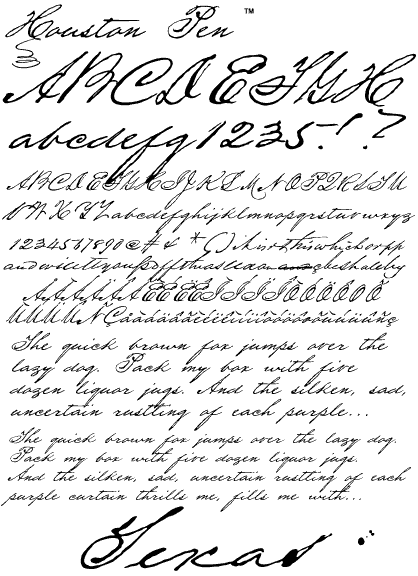 Houston Pen ™
ABCDEFGH
abcdefg1235!?
ABCDEFGHIJKLMNOPQRSTU
VWXYZ abcdefghijklmnopqrstuvwxyz
1234567890@#& *()
ÀÁÂÃÄÅÈÉÊËÌÍÎÏÒÓÔÕÖ
The quick brown fox jumps over the
lazy dog. Pack my box with five
dozen liquor jugs. And the silken, sad,
uncertain rustling of each purple...
The quick brown fox jumps over the lazy dog.
Pack my box with five dozen liquor jugs.
And the silken, sad, uncertain rustling of each
purple curtain thrills me, fills me with...
Texas